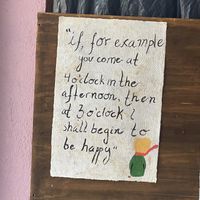 "if, for example
you come at
4 o'clock in the
afternoon, then
at 3 o'clock I
shall begin to
be happy"